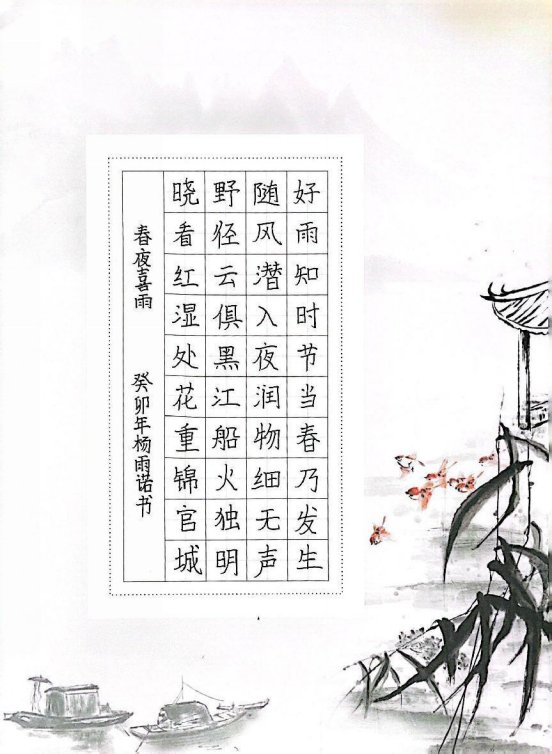 好雨知时节当春乃发生
随风潜入夜润物细无声
野径云俱黑江船火独明
晓看红湿处花重锦官城
春夜喜雨 癸卯年杨雨诺书